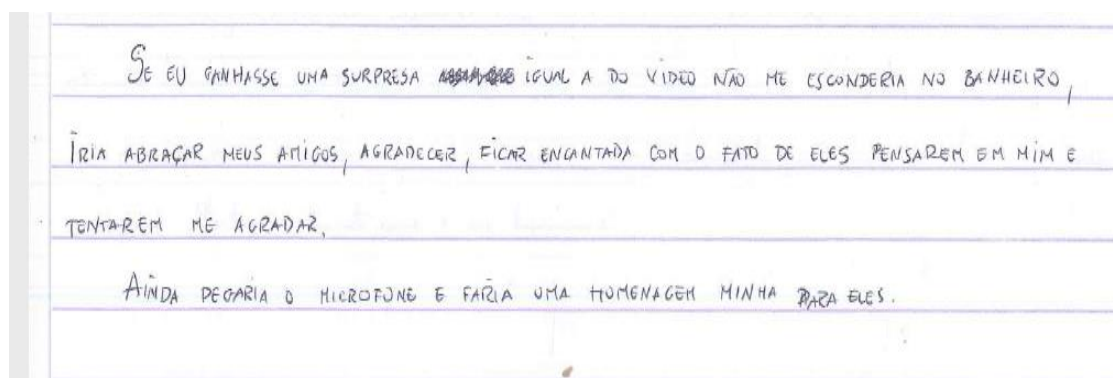 SE EU GANHASSE UMA SURPRESA IGUAL A DO VIDEO NÃO ME ESCONDERIA NO BANHEIRO,
IRIA ABRAÇAR MEUS AMIGOS, AGRADECER, FICAR ENCANTADA COM O FATO DE ELES PENSAREM EM MIM E
TENTAREM ME AGRADAR.
AINDA PEGARIA O MICROFONE E FARIA UMA HOMENAGEM MINHA PARA ELES.